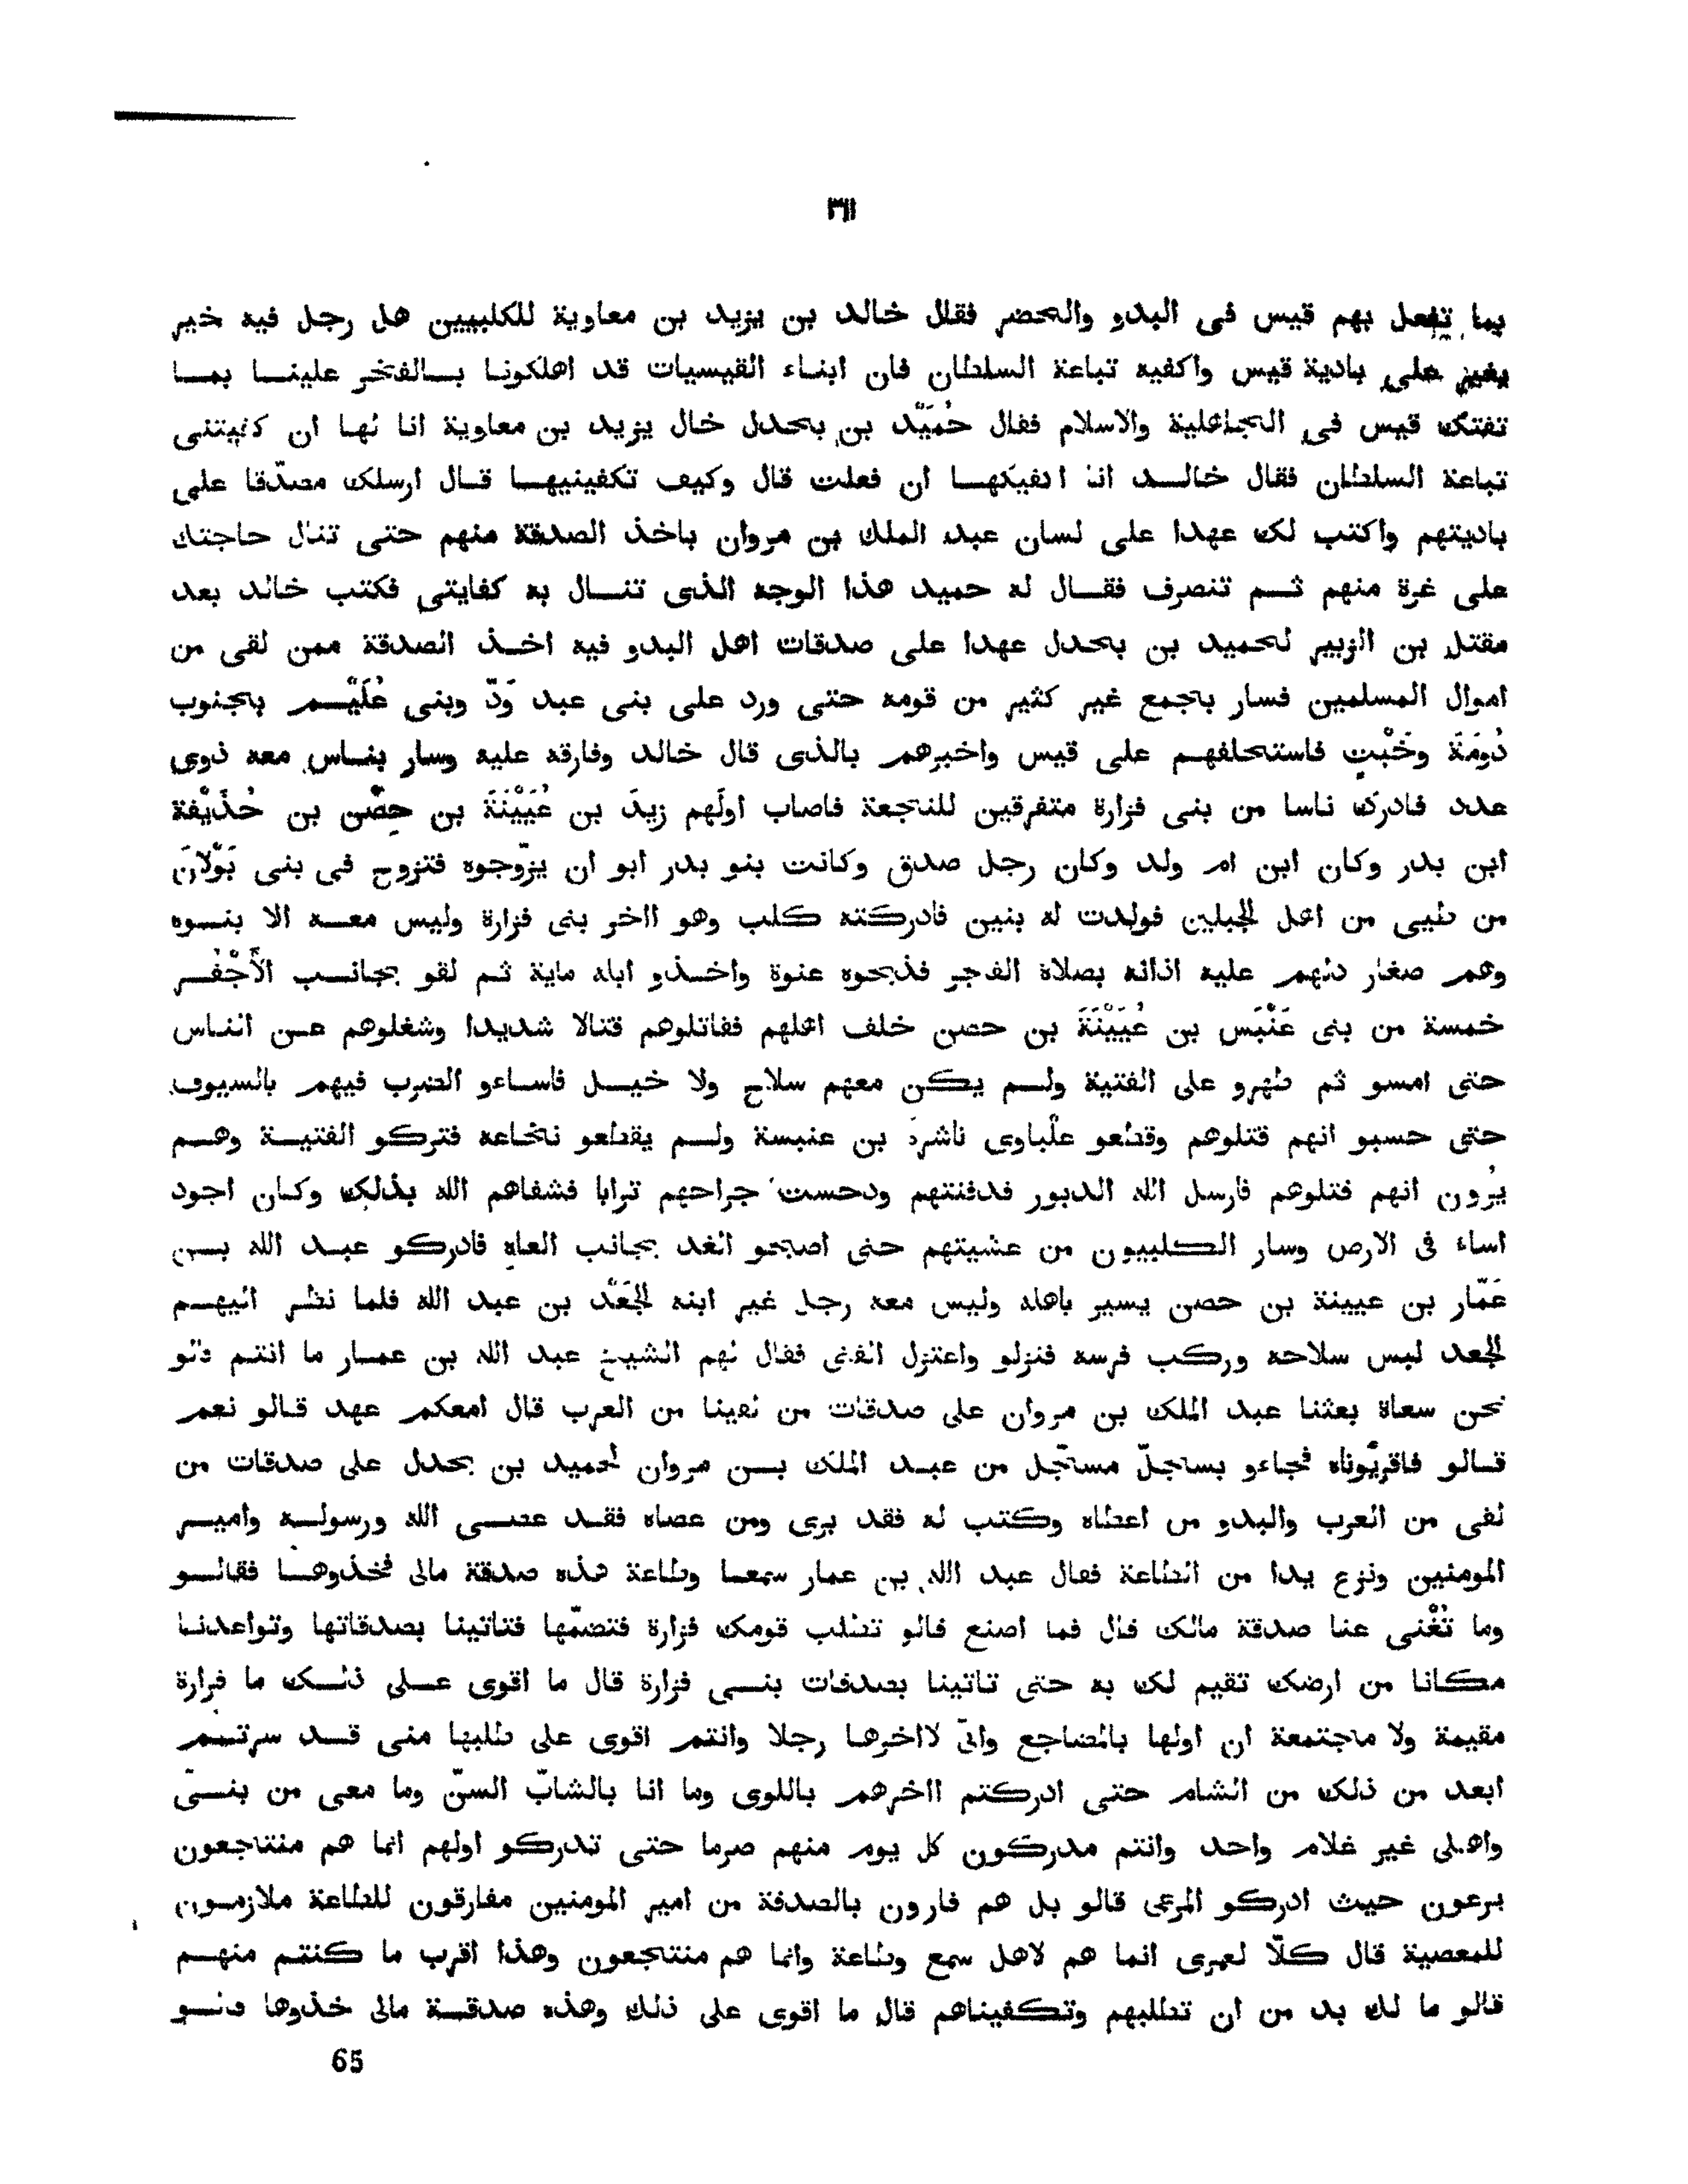 بما تفعل بهم قيس فى البدو والحضر فقال خالد بن يزيد بن معاوية للكلبيين هل رجل فيه خير
يغير على بادية قيس واكفيه تباعة السلطان فان ابناء القيسيات قد اهلكونا بالفخر علينا بما
تفتك قيس فى الجاهلية والاسلام فقال حُمَيْد بن بحدل خال يزيد بن معاوية انا لها ان كفيتنى
تباعة السلطان فقال خالد انا اكفيكها ان فعلت قال وكيف تكفينيها قال ارسلك مصدّقا على
باديتهم واكتب لك عهدا على لسان عبد الملك بن مروان باخذ الصدقة منهم حتى تنال حاجتك
على غرة منهم ثم تنصرف فقال له حميد هذا الوجه الذى تنال به كفايتى فكتب خالد بعد
مقتل بن الزبير لحميد بن بحدل عهدا على صدقات اهل البدو فيه اخذ الصدقة ممن لقى من
اموال المسلمين فسار بجمع غير كثير من قومه حتى ورد على بنى عبد وَدّ وبنى عُلَيْم بجنوب
دُومَةَ وخَبْتٍ فاستحلفهم على قيس واخبرهم بالذى قال خالد وفارقه عليه وسار بناس معه ذوى
عدد فادرك ناسا من بنى فزارة متفرقين للنجعة فاصاب اولَهم زيدَ بن عُيَيْنَةَ بن حِصْن بن حُذَيْفة
ابن بدر وكان ابن ام ولد وكان رجل صدق وكانت بنو بدر ابو ان يزّوجوه فتزوج فى بنى بَوْلانَ
من طيى من اهل الجبلين فولدت له بنين فادركته كلب وهو ااخر بنى فزارة وليس معه الا بنوه
وهم صغار دلهم عليه اذانه بصلاة الفجر فذبحوه عنوة واخذو ابله ماية ثم لقو بجانب الأَجْفُر
خمسة من بنى عَنْبَس بن عُيَيْنَةَ بن حصن خلف اهلهم فقاتلوهم قتالا شديدا وشغلوهم عن الناس
حتى امسو ثم ظهرو على الفتية ولم يكن معهم سلاح ولا خيل فاساءو الضرب فيهم بالسيوف
حتى حسبو انهم قتلوهم وقطعو علْباوى ناشرة بن عنبسة ولم يقطعو نخاعه فتركو الفتية وهم
يُرون انهم قتلوهم فارسل الله الدبور فدفنتهم ودحست جراحهم ترابا فشفاهم الله بذلك وكان اجود
اساء فى الارض وسار الكلبيون من عشيتهم حتى اصبحو الغد بجانب العاه فادركو عبد الله بن
عَمّار بن عيينة بن حصن يسير باهله وليس معه رجل غير ابنه الجَعْد بن عبد الله فلما نظر اليهم
الجعد لبس سلاحه وركب فرسه فنزلو واعتزل الفتى فقال لهم الشيخ عبد الله بن عمار ما انتم قالو
نحن سعاة بعثنا عبد الملك بن مروان على صدقات من لقينا من العرب قال امعكم عهد قالو نعم
قالو فاقريُوناه فجاءو بسجلّ مسجّل من عبد الملك بن مروان لحميد بن بحدل على صدقات من
لقى من العرب والبدو من اعطاه وكتب له فقد برى ومن عصاه فقد عصى الله ورسوله وامير
المومنين ونزع يدا من الطاعة فقال عبد الله بن عمار سمعا وطاعة هذه صدقة مالى فخذوها فقالو
وما تُغْنى عنا صدقة مالك قال فما اصنع قالو تطلب قومك فزارة فتضمّها فتاتينا بصدقاتها وتواعدنا
مكانا من ارضك تقيم لك به حتى تاتينا بصدقات بنى فزارة قال ما اقوى على ذلك ما فزارة
مقيمة ولا مجتمعة ان اولها بالمضاجع وانّى لااخرها رجلا وانتم اقوى على طلبها منى قد سرتم
ابعد من ذلك من الشام حتى ادركتم ااخرهم باللوى وما انا بالشابّ السنّ وما معى من بنىّ
واهلى غير غلام واحد وانتم مدركون كل يوم منهم صرما حتى تدركو اولهم انما هم منتجعون
يرعون حيث ادركو المرعى قالو بل هم فارون بالصدقة من امير المومنين مفارقون للطاعة ملازمون
للمعصية قال كلّا لعمرى انما هم لاهل سمع وطاعة وانما هم منتجعون وهذا اقرب ما كنتم منهم
قالو ما لك بد من ان تطلبهم وتكفيناهم قال ما اقوى على ذلك وهذه صدقة مالى خذوها قالو
65